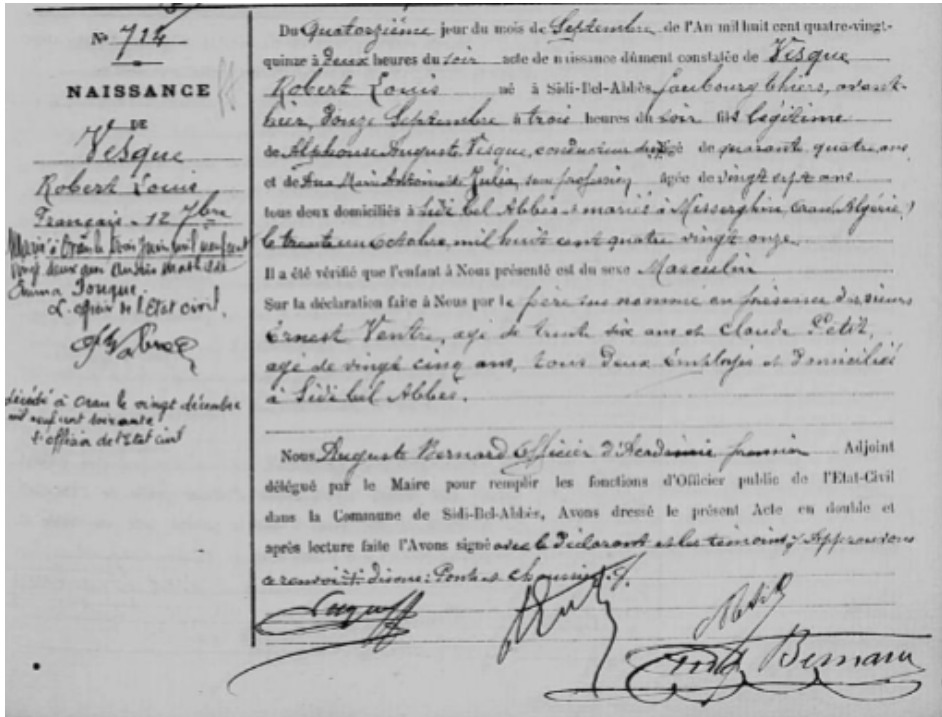 N° 714
NAISSANCE
DE
Vesque
Robert Louis
Français - 12 7bre
Marié à Oran le trois juin mil neuf cent
vingt deux avec Mathilde
Emma
L'officier de l'Etat civil.
décédé à Oran le vingt décembre
mil neuf cent soixante
L'officier de l'Etat civil
Du Quatorzième jour du mois de Septembre de l'An mil huit cent quatre-vingt-
quinze à Deux heures du soir acte de naissance dûment constatée de Vesque
Robert Louis né à Sidi-Bel-Abbès, faubourg Thiers, avant-
hier, Douze Septembre à trois heures du soir fils légitime
de Alphonse Auguste Vesque, conducteur âgé de quarante quatre ans
et de Marie Antoinette Julia, sans profession âgée de vingt sept ans
tous deux domiciliés à Sidi bel Abbès & mariés à Misserghin, Oran (Algérie)
le trente un octobre, mil huit cent quatre vingt onze.
Il a été vérifié que l'enfant à Nous présenté est du sexe Masculin
Sur la déclaration faite à Nous par le père sus nommé en présence des sieurs
Ernest Ventre, agé de trente six ans et Claude Petit,
agé de vingt cinq ans, tous deux employés et domiciliés
à Sidi bel Abbès.
Nous Auguste Bernard Officier d'Académie premier Adjoint
délégué par le Maire pour remplir les fonctions d'Officier public de l'Etat-Civil
dans la Commune de Sidi-Bel-Abbès, Avons dressé le présent Acte en double et
après lecture faite l'Avons signé avec le Déclarant et les témoins, Approuvons
le renvoi disons: Ponts & chaussées.
Vesque
Petit
Bernard